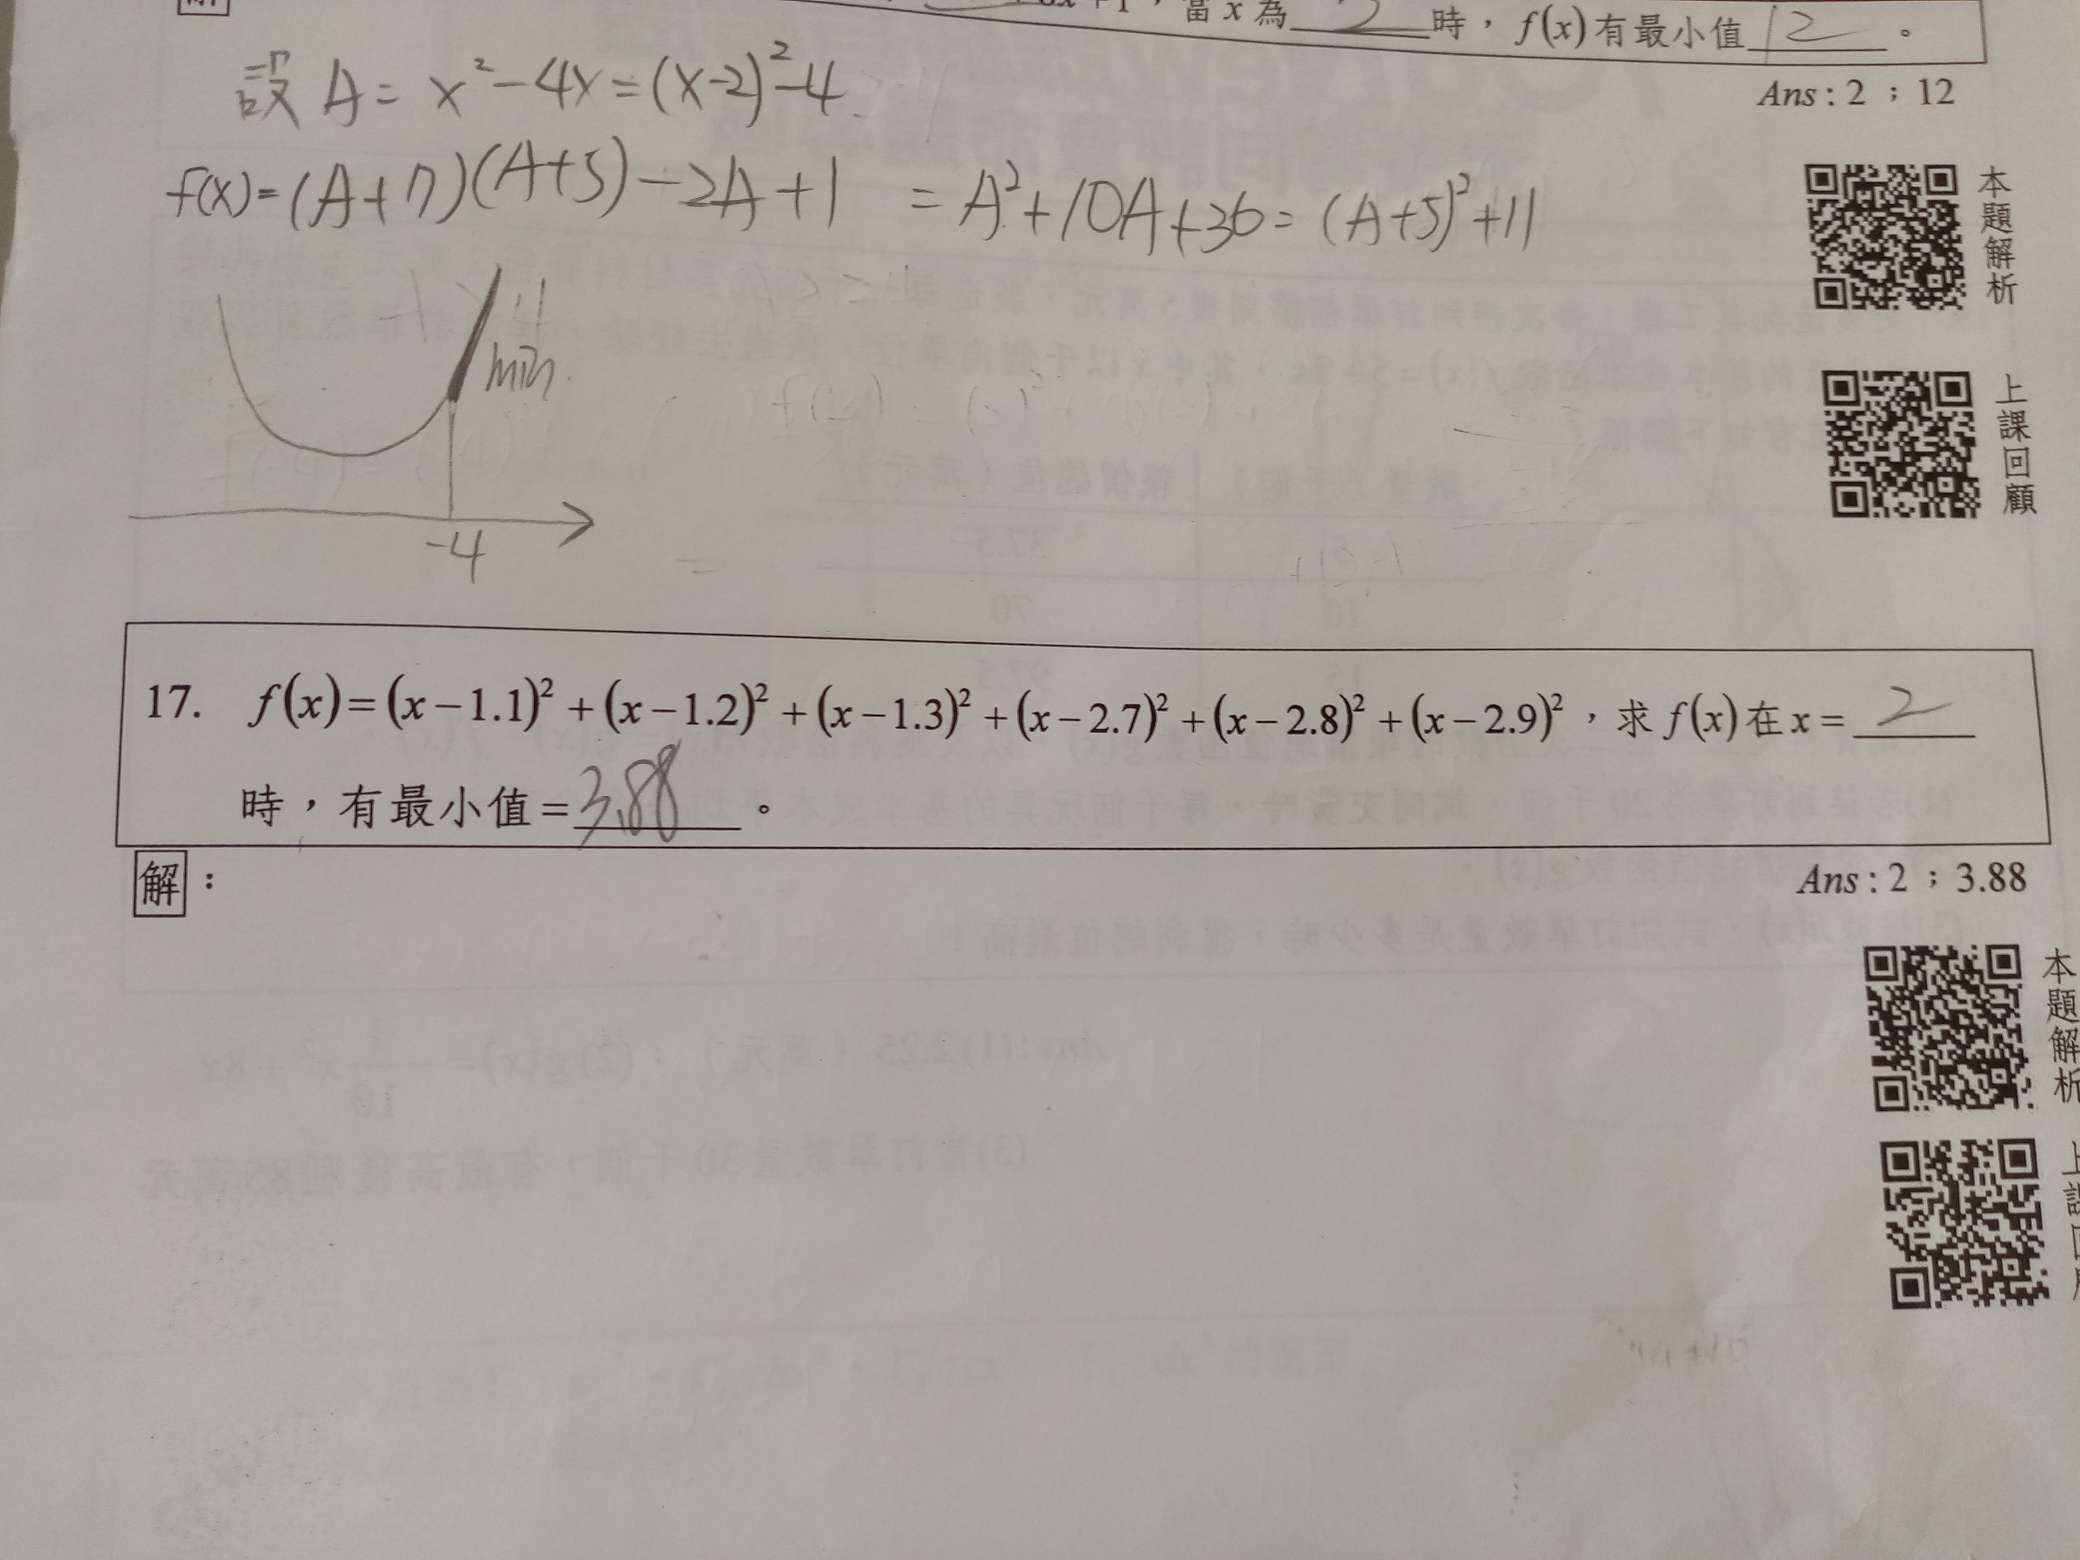 解
x + 1，當 x 為 2 時，f(x)有最小值 12 。
設 A = x² - 4x = (x-2)² - 4
Ans : 2 ；12
f(x) = (A+7)(A+5) - 2A + 1 = A² + 10A + 36 = (A+5)² + 11
本題解析
min.
上課回顧
-4
17. f(x) = (x-1.1)² + (x-1.2)² + (x-1.3)² + (x-2.7)² + (x-2.8)² + (x-2.9)²，求 f(x) 在 x = 2
時，有最小值 = 3.88 。
解：
Ans : 2 ；3.88
本題解析
上課回